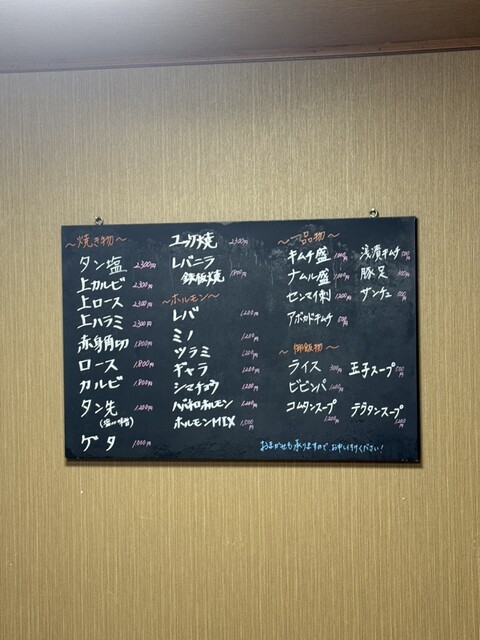 〜焼き物〜
タン塩 2,300円
上カルビ 2,300円
上ロース 2,300円
上ハラミ 2,300円
赤身角切 1,800円
ロース 1,800円
カルビ 1,800円
タン先 1,200円
ゲタ 1,000円
ユッケ焼 2,300円
レバニラ
鉄板焼
〜ホルモン〜
レバ 1,200円
ミノ 1,200円
ツラミ 1,200円
ギャラ 1,200円
シマチョウ 1,200円
ハバネロホルモン 1,200円
ホルモンMIX
〜一品物〜
キムチ盛
ナムル盛
センマイ刺 1200円
アボカドキムチ
浅漬キムチ
豚足
サンチュ
〜御飯物〜
ライス
ビビンバ
コムタンスープ 1,200円
玉子スープ
テグタンスープ 1,200円
おまかせも承りますので、お申し付けください!